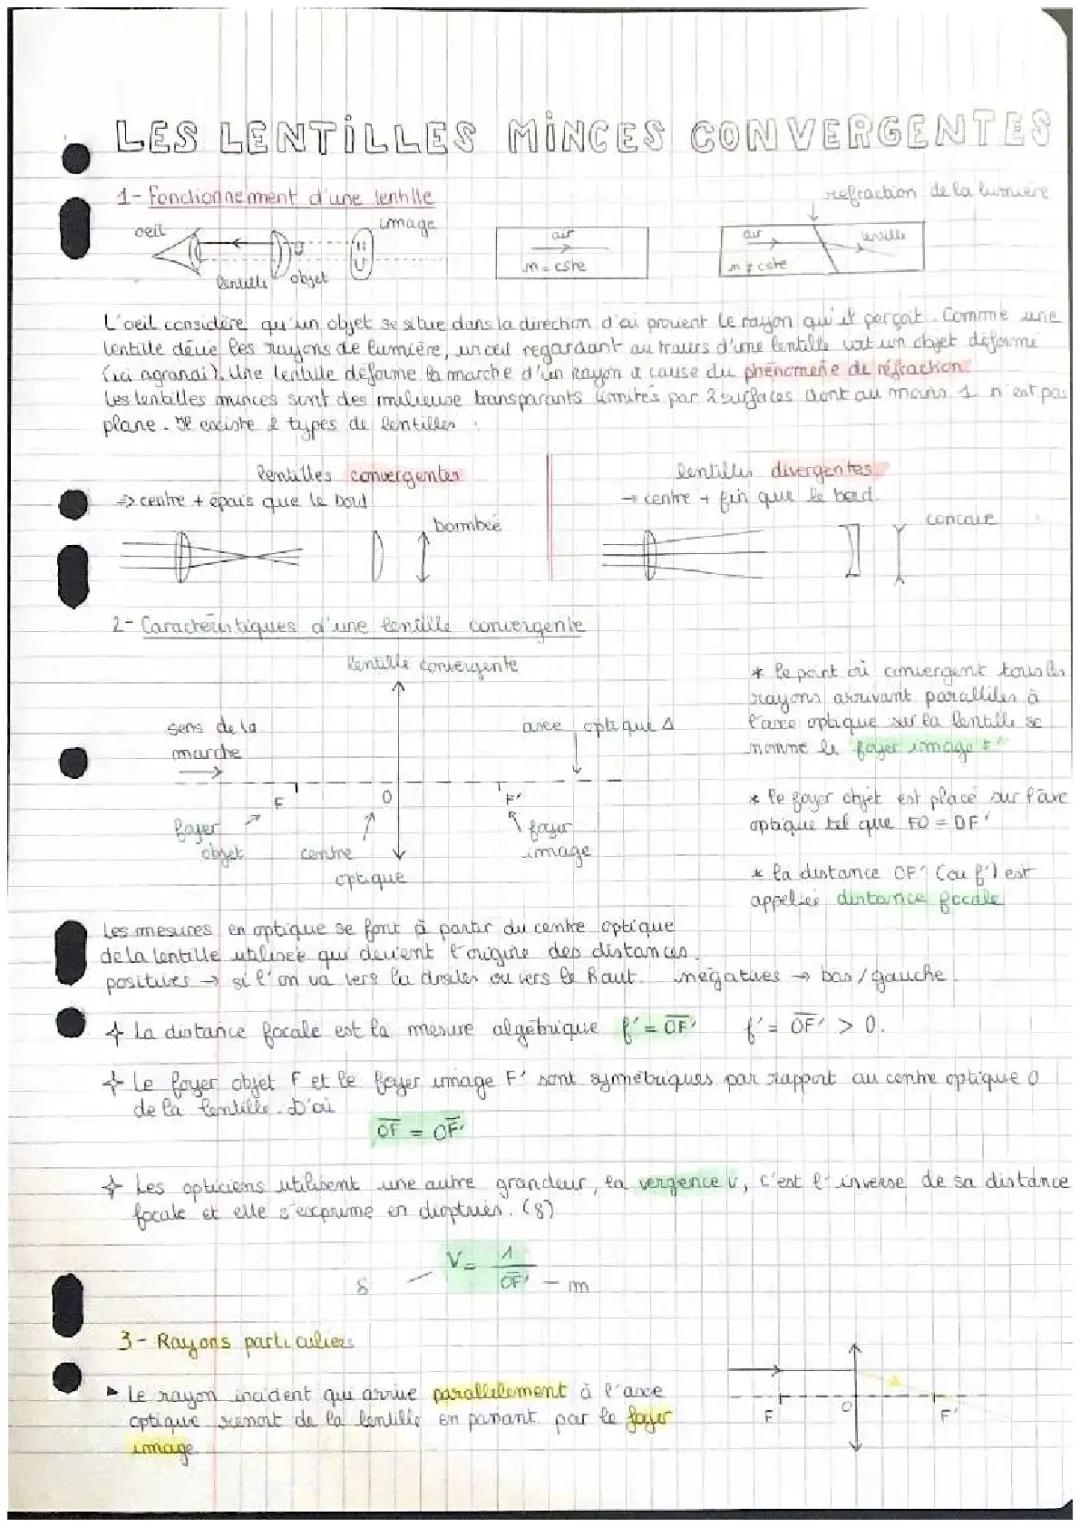 LES LENTILLES MINCES CONVERGENTES
1- Fonctionnement d'une lentille
refraction de la lumière
oeil
image
lentille
objet
air
n = cste
air
lentille
n ≠ cste
L'oeil considère qu'un objet se situe dans la direction d'où provient le rayon qu'il perçoit. Comme une
lentille dévie les rayons de lumière, un oeil regardant au travers d'une lentille voit un objet déformé
(ici agrandi). Une lentille déforme la marche d'un rayon à cause du phénomène de réfraction.
Les lentilles minces sont des milieuse transparants limités par 2 surfaces dont au moins 1 n'est pas
plane. Il existe 2 types de lentilles :
lentilles convergentes
⇒ centre + épais que le bord
bombée
lentilles divergentes
→ centre + fin que le bord.
concave
2- Caractéristiques d'une lentille convergente
lentille convergente
sens de la
marche
axe optique Δ
F
O
F'
foyer
objet
centre
optique
foyer
image
* le point où convergent tous les
rayons arrivant parallèles à
l'axe optique sur la lentille se
nomme le "foyer image F'"
* le foyer objet est placé sur l'axe
optique tel que FO = OF'
* la distance OF' (ou f') est
appelée distance focale
Les mesures en optique se font à partir du centre optique
de la lentille utilisée qui devient l'origine des distances.
positives → si l'on va vers la droite ou vers le haut. négatives → bas/gauche.
La distance focale est la mesure algébrique f' = OF' f' = OF' > 0.
Le foyer objet F et le foyer image F' sont symétriques par rapport au centre optique O
de la lentille. D'où
OF = OF'
Les opticiens utilisent une autre grandeur, la vergence V, c'est l'inverse de sa distance
focale et elle s'exprime en dioptries. (δ)
V = 1
δ
OF' - m
3- Rayons particuliers
▸ Le rayon incident qui arrive parallèlement à l'axe
optique ressort de la lentille en passant par le foyer
image
F
O
F'